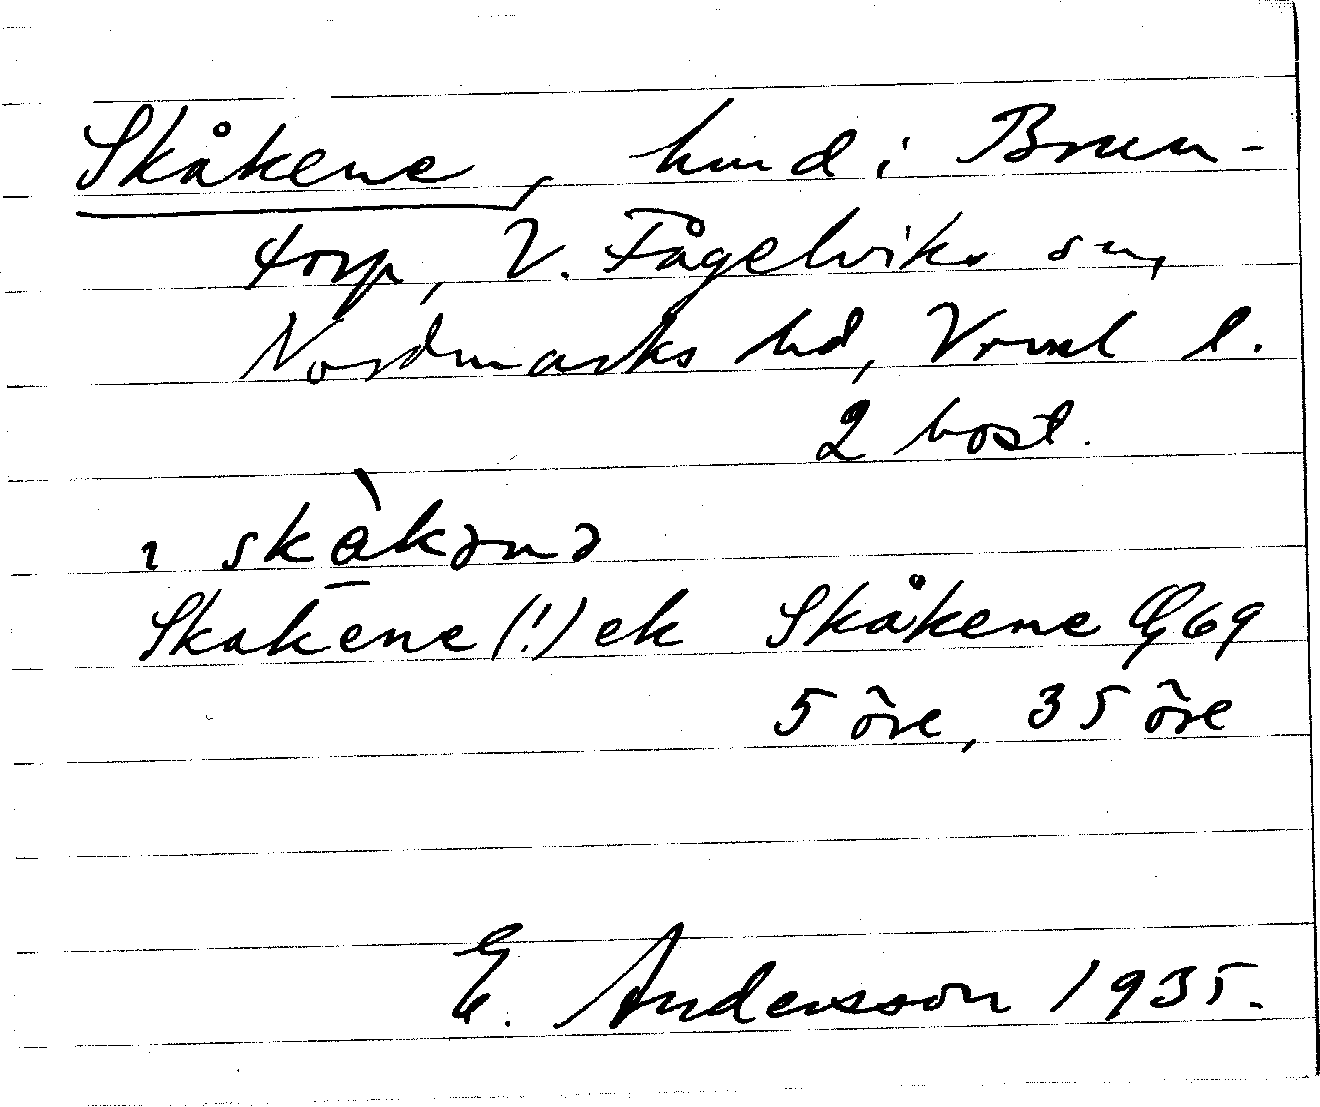 Skåkene, hmd i Brun-
torp, V. Fågelviks sn,
Nordmarks hd, Vrml l.
2 bost.
ı skå̀kənə
Skakene (!) ek Skåkene Gj69
5 öre, 35 öre
E. Andersson 1935.